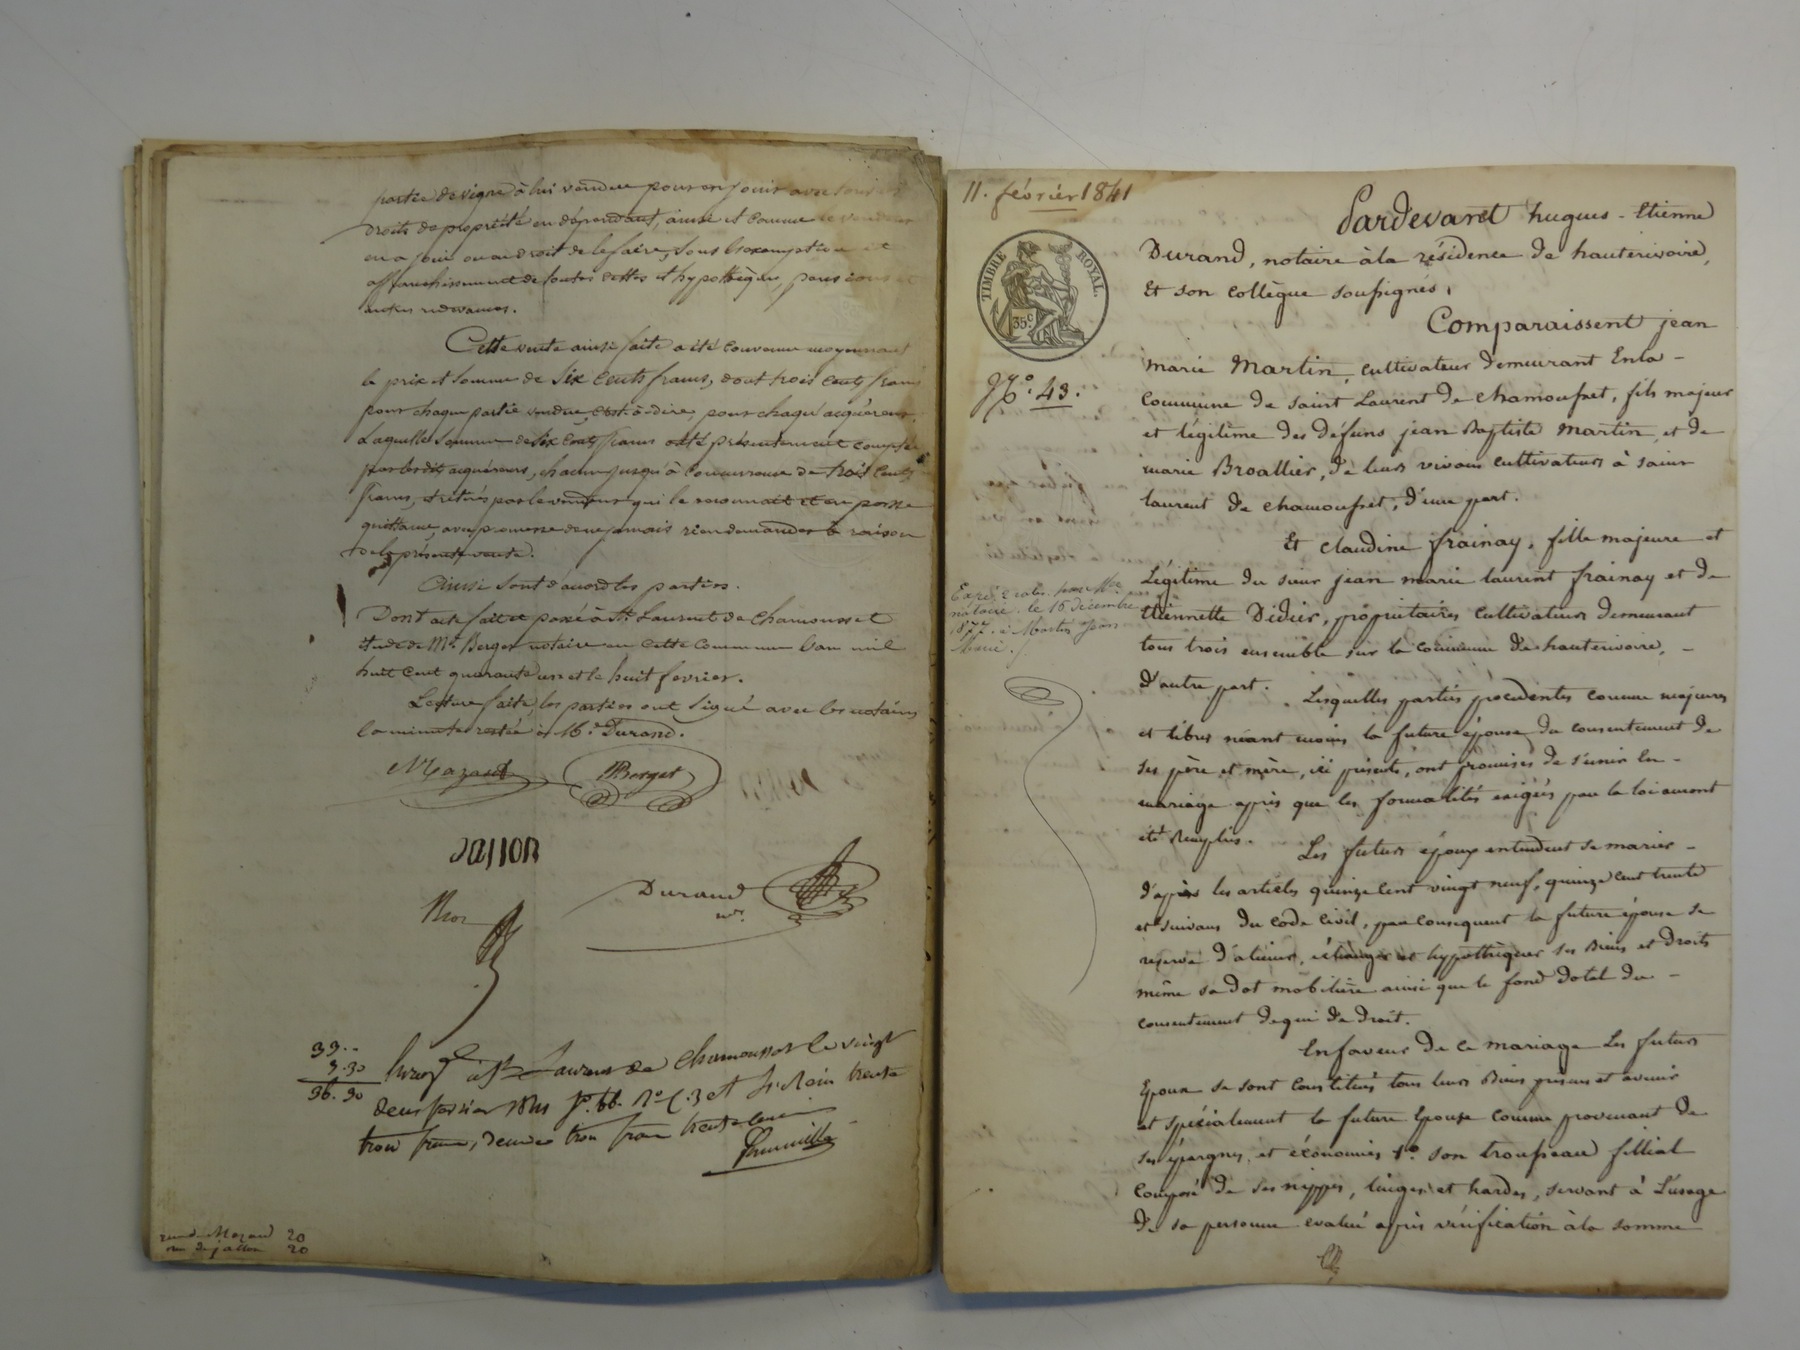 partie de vigne à lui vendue pour en jouir avec tous les
droits de propriété en dépendant, ainsi et comme le vendeur
en a joui ou au droit de le faire, sous l'exemption et
affranchissement de toutes dettes et hypothèques, pensions et
autres redevances.
Cette vente ainsi faite a été convenue moyennant
le prix et somme de Six Cents francs, dont trois cents francs
pour chaque partie vendue, c'est-à-dire, pour chaque acquéreur,
Laquelle Somme de Six Cents francs a été présentement comptée
par lesdits acquéreurs, chacun jusqu'à concurrence de trois Cents
francs, et retirés par le vendeur qui le reconnait et en passe
quittance, avec promesse de ne jamais rien demander à raison
de la présente vente.
Ainsi Sont d'accord les parties.
Dont acte fait et passé à St. Laurent de Chamousset
étude de Me. Berger notaire en cette Commune L'an mil
huit Cent quarante un et le huit fevrier.
Lecture faite, les parties ont Signé avec les notaires
la minute restée à Me. Durand.
Mazard Berger
Jallon
Durand
nre.
33..
3.30
36.30
à St Laurent de Chamousset le vingt
deux fevrier 1841 fo. 66. Ro C. 3 et Reçu trente
trois francs, decimes trois francs trente centimes
Mazard 20
jallon 20
11. février 1841
TIMBRE ROYAL.
35c
No. 43.
Pardevant hugues - Etienne
Durand, notaire à la résidence de hauterivoire,
Et son collègue soussignés,
Comparaissent jean
marie Martin, cultivateur demeurant En la -
Commune de saint Laurent de chamousset, fils majeur
et légitime des défuns jean Baptiste Martin, et de
marie Broallier, de leurs vivans cultivateurs à saint
laurent de chamousset, d'une part.
Et claudine frainay, fille majeure et
Légitime du sieur jean marie laurent frainay et de
Etiennette Didier, propriétaires cultivateurs demeurant
tous trois ensemble sur la commune de hauterivoire, -
d'autre part. Lesquelles parties procedentes comme majeures
et libres néant moins la future épouse du consentement de
ses père et mère, ici présents, ont promises de s'unir en -
mariage après que les formalités exigées par la loi auront
été Remplies. Les futurs époux entendent se marier -
d'après les articles quinze Cent vingt neuf, quinze cent trente
et suivans du code civil, par conséquent la future épouse se
réserve d'aliéner, échanger et hypothéquer ses Biens et droits
même sa dot mobilière ainsi que le fond dotal du -
consentement de qui de droit.
En faveur de ce mariage Les futurs
Epoux se sont Constitués tous leurs Biens présens et avenir
et spécialement la future Epouse comme provenant de
ses épargnes, et économies 1o. son trousseau fillial
Composé de ses nippes, linges et hardes, servant à L'usage
de sa personne évalué après vérification à la somme
notaire, le 16 décembre
1877, à Martin Jean
Marie.